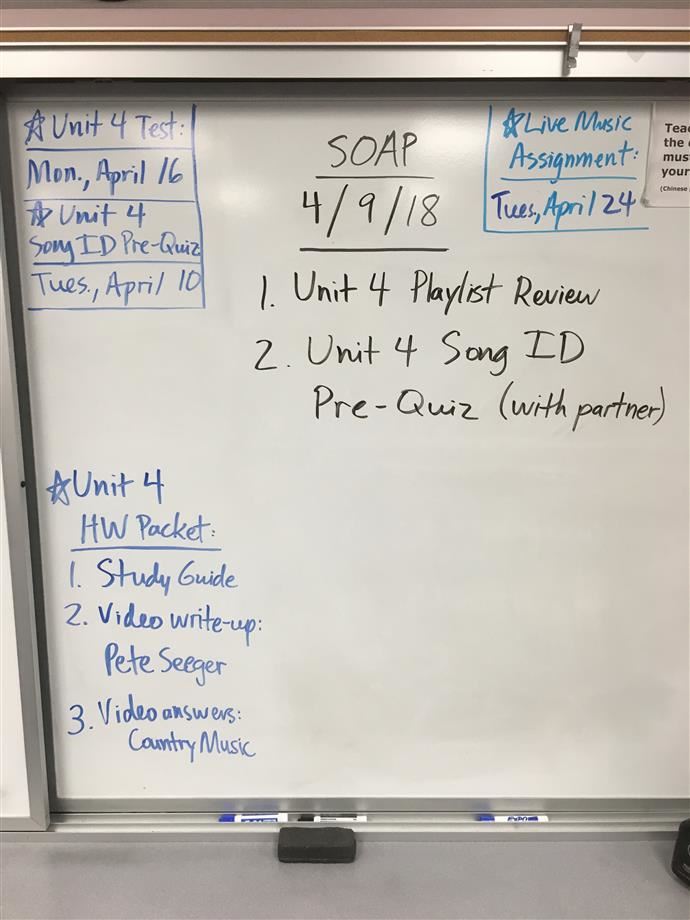 ☆ Unit 4 Test:
Mon., April 16
☆ Unit 4
Song ID Pre-Quiz
Tues., April 10
SOAP
4/9/18
1. Unit 4 Playlist Review
2. Unit 4 Song ID
Pre-Quiz (with partner)
☆ Live Music
Assignment:
Tues., April 24
Teac
the
mus
your
(Chinese
☆ Unit 4
HW Packet:
1. Study Guide
2. Video write-up:
Pete Seeger
3. Video answers:
Country Music
EXPO